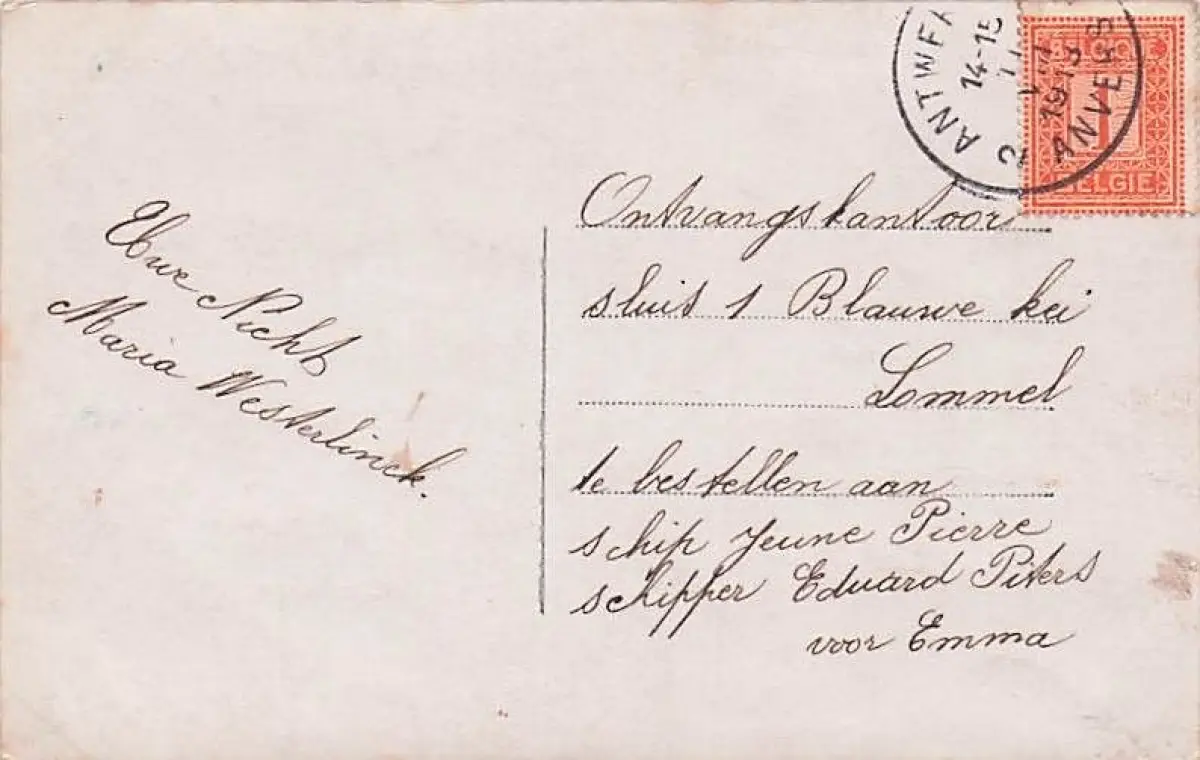 ANTWE
14-15
1913
2 ANVERS
BELGIQUE
1
BELGIE
Uwe Nicht
Maria Westerlinck.
Ontvangskantoor
sluis 1 Blauwe kei
Lommel
te bestellen aan
schip Jeune Pierre
schipper Eduard Piters
voor Emma